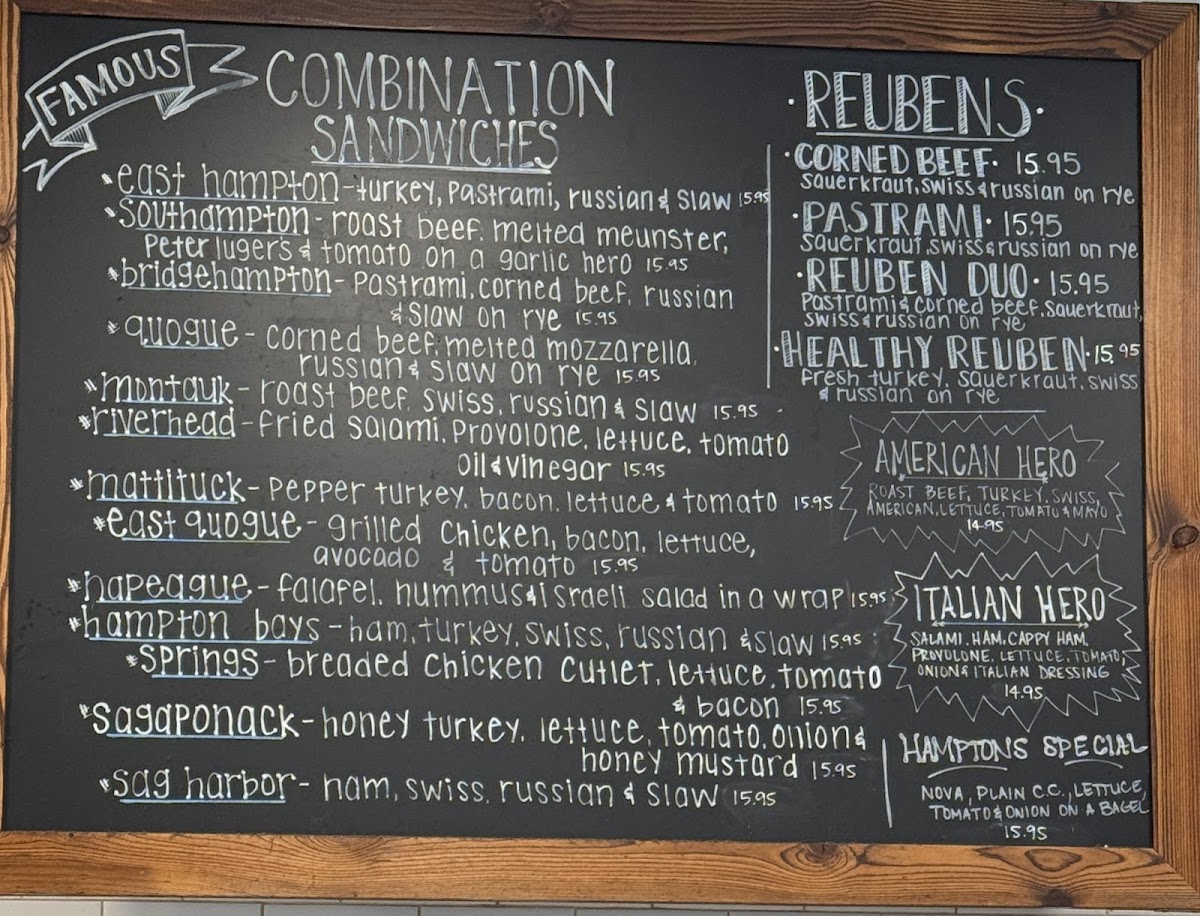 FAMOUS
COMBINATION
SANDWICHES
*east hampton - turkey, Pastrami, russian & Slaw 15.95
*Southampton - roast beef, melted meunster,
Peter luger's & tomato on a garlic hero 15.95
*bridgehampton - Pastrami, corned beef, russian
& Slaw on rye 15.95
*quogue - corned beef, melted mozzarella,
russian & slaw on rye 15.95
*montauk - roast beef, swiss, russian & slaw 15.95
*riverhead - fried salami, Provolone, lettuce, tomato
oil & vinegar 15.95
*mattituck - pepper turkey, bacon, lettuce & tomato 15.95
*east quogue - grilled Chicken, bacon, lettuce,
avocado & tomato 15.95
*napeague - falafel, hummus & israeli salad in a wrap 15.95
*hampton bays - ham, turkey, swiss, russian & slaw 15.95
*springs - breaded Chicken Cutlet, lettuce, tomato
& bacon 15.95
*sagaponack - honey turkey, lettuce, tomato, onion &
honey mustard 15.95
*sag harbor - ham, swiss, russian & slaw 15.95
·REUBENS·
·CORNED BEEF· 15.95
sauerkraut, swiss & russian on rye
·PASTRAMI· 15.95
sauerkraut, swiss & russian on rye
·REUBEN DUO· 15.95
Pastrami & corned beef, sauerkraut,
swiss & russian on rye
·HEALTHY REUBEN· 15.95
fresh turkey, sauerkraut, swiss
& russian on rye
AMERICAN HERO
ROAST BEEF, TURKEY, SWISS,
AMERICAN, LETTUCE, TOMATO & MAYO
14.95
ITALIAN HERO
SALAMI, HAM, CAPPY HAM,
PROVOLONE, LETTUCE, TOMATO,
ONION & ITALIAN DRESSING
14.95
HAMPTONS SPECIAL
NOVA, PLAIN C.C., LETTUCE,
TOMATO & ONION ON A BAGEL
15.95